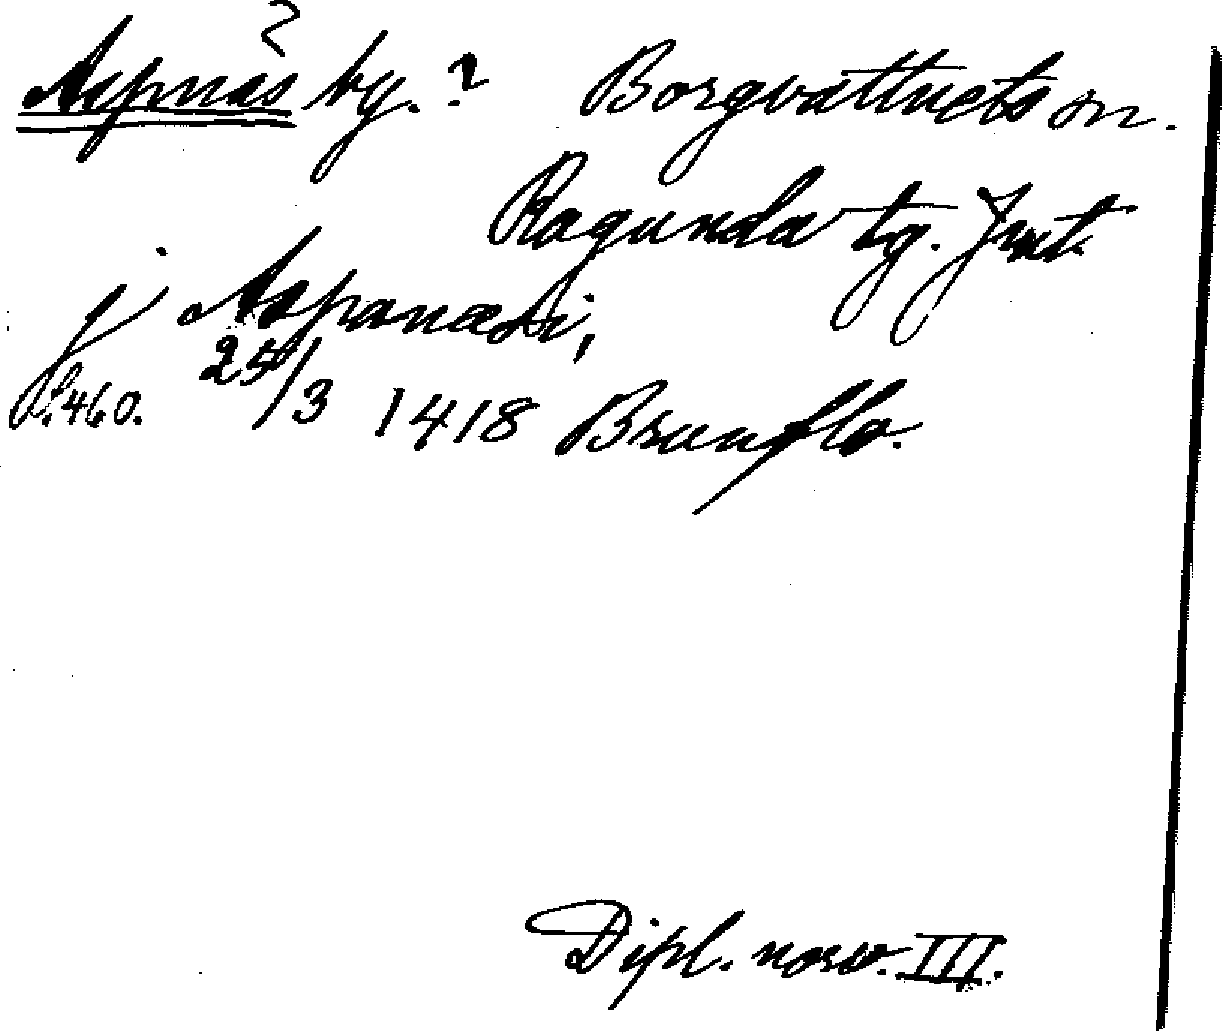 ?
Aspnäs by. ? Borgvattnets sn.
Ragunda tg. Jmt.
j Aspanæsi,
S. 460. 25/3 1418 Brunflo.
Dipl. norv. III.